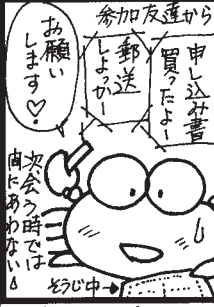 参加友達から
申し込み書
買ったよー
郵送
しよっかー
お願い
します♡
次会う時では
間にあわない
そうじ中→